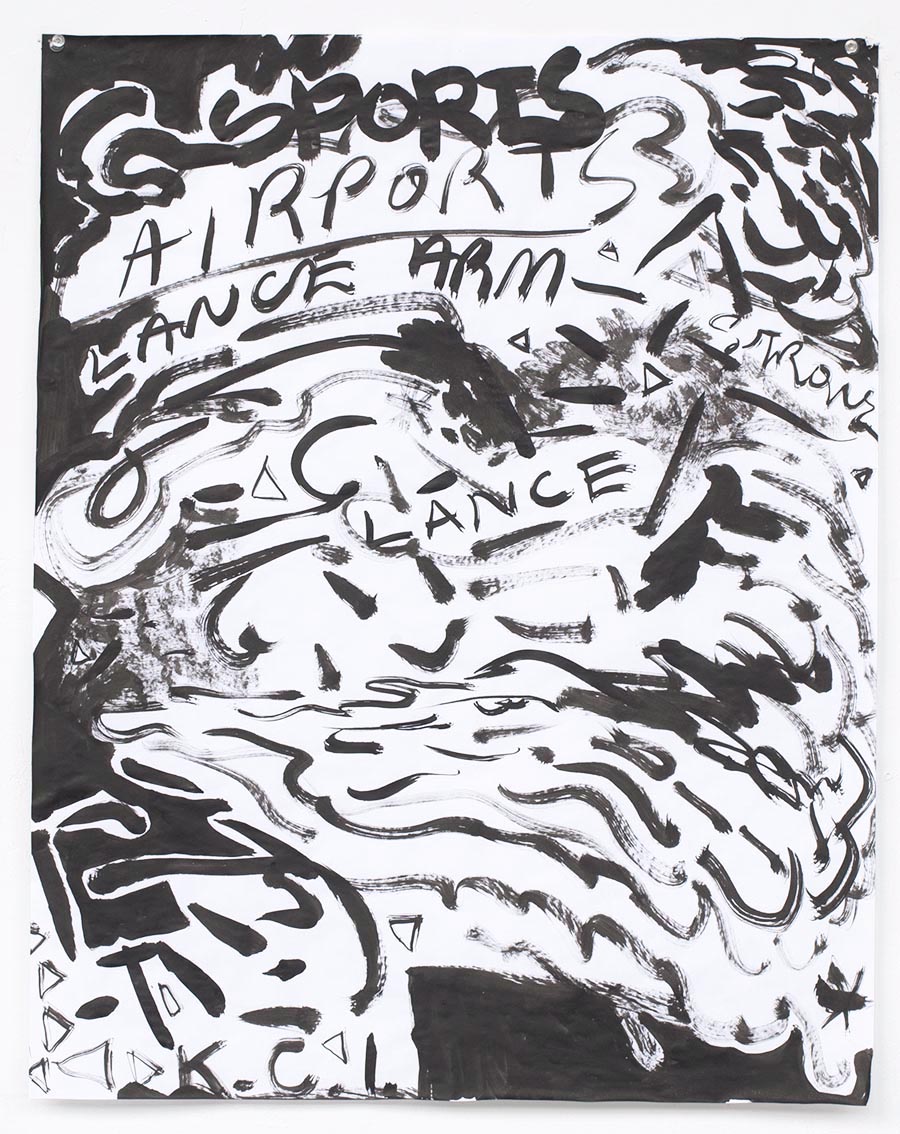 SPORTS
AIRPORT
LANCE ARM-
STRONG
LANCE
K.C I